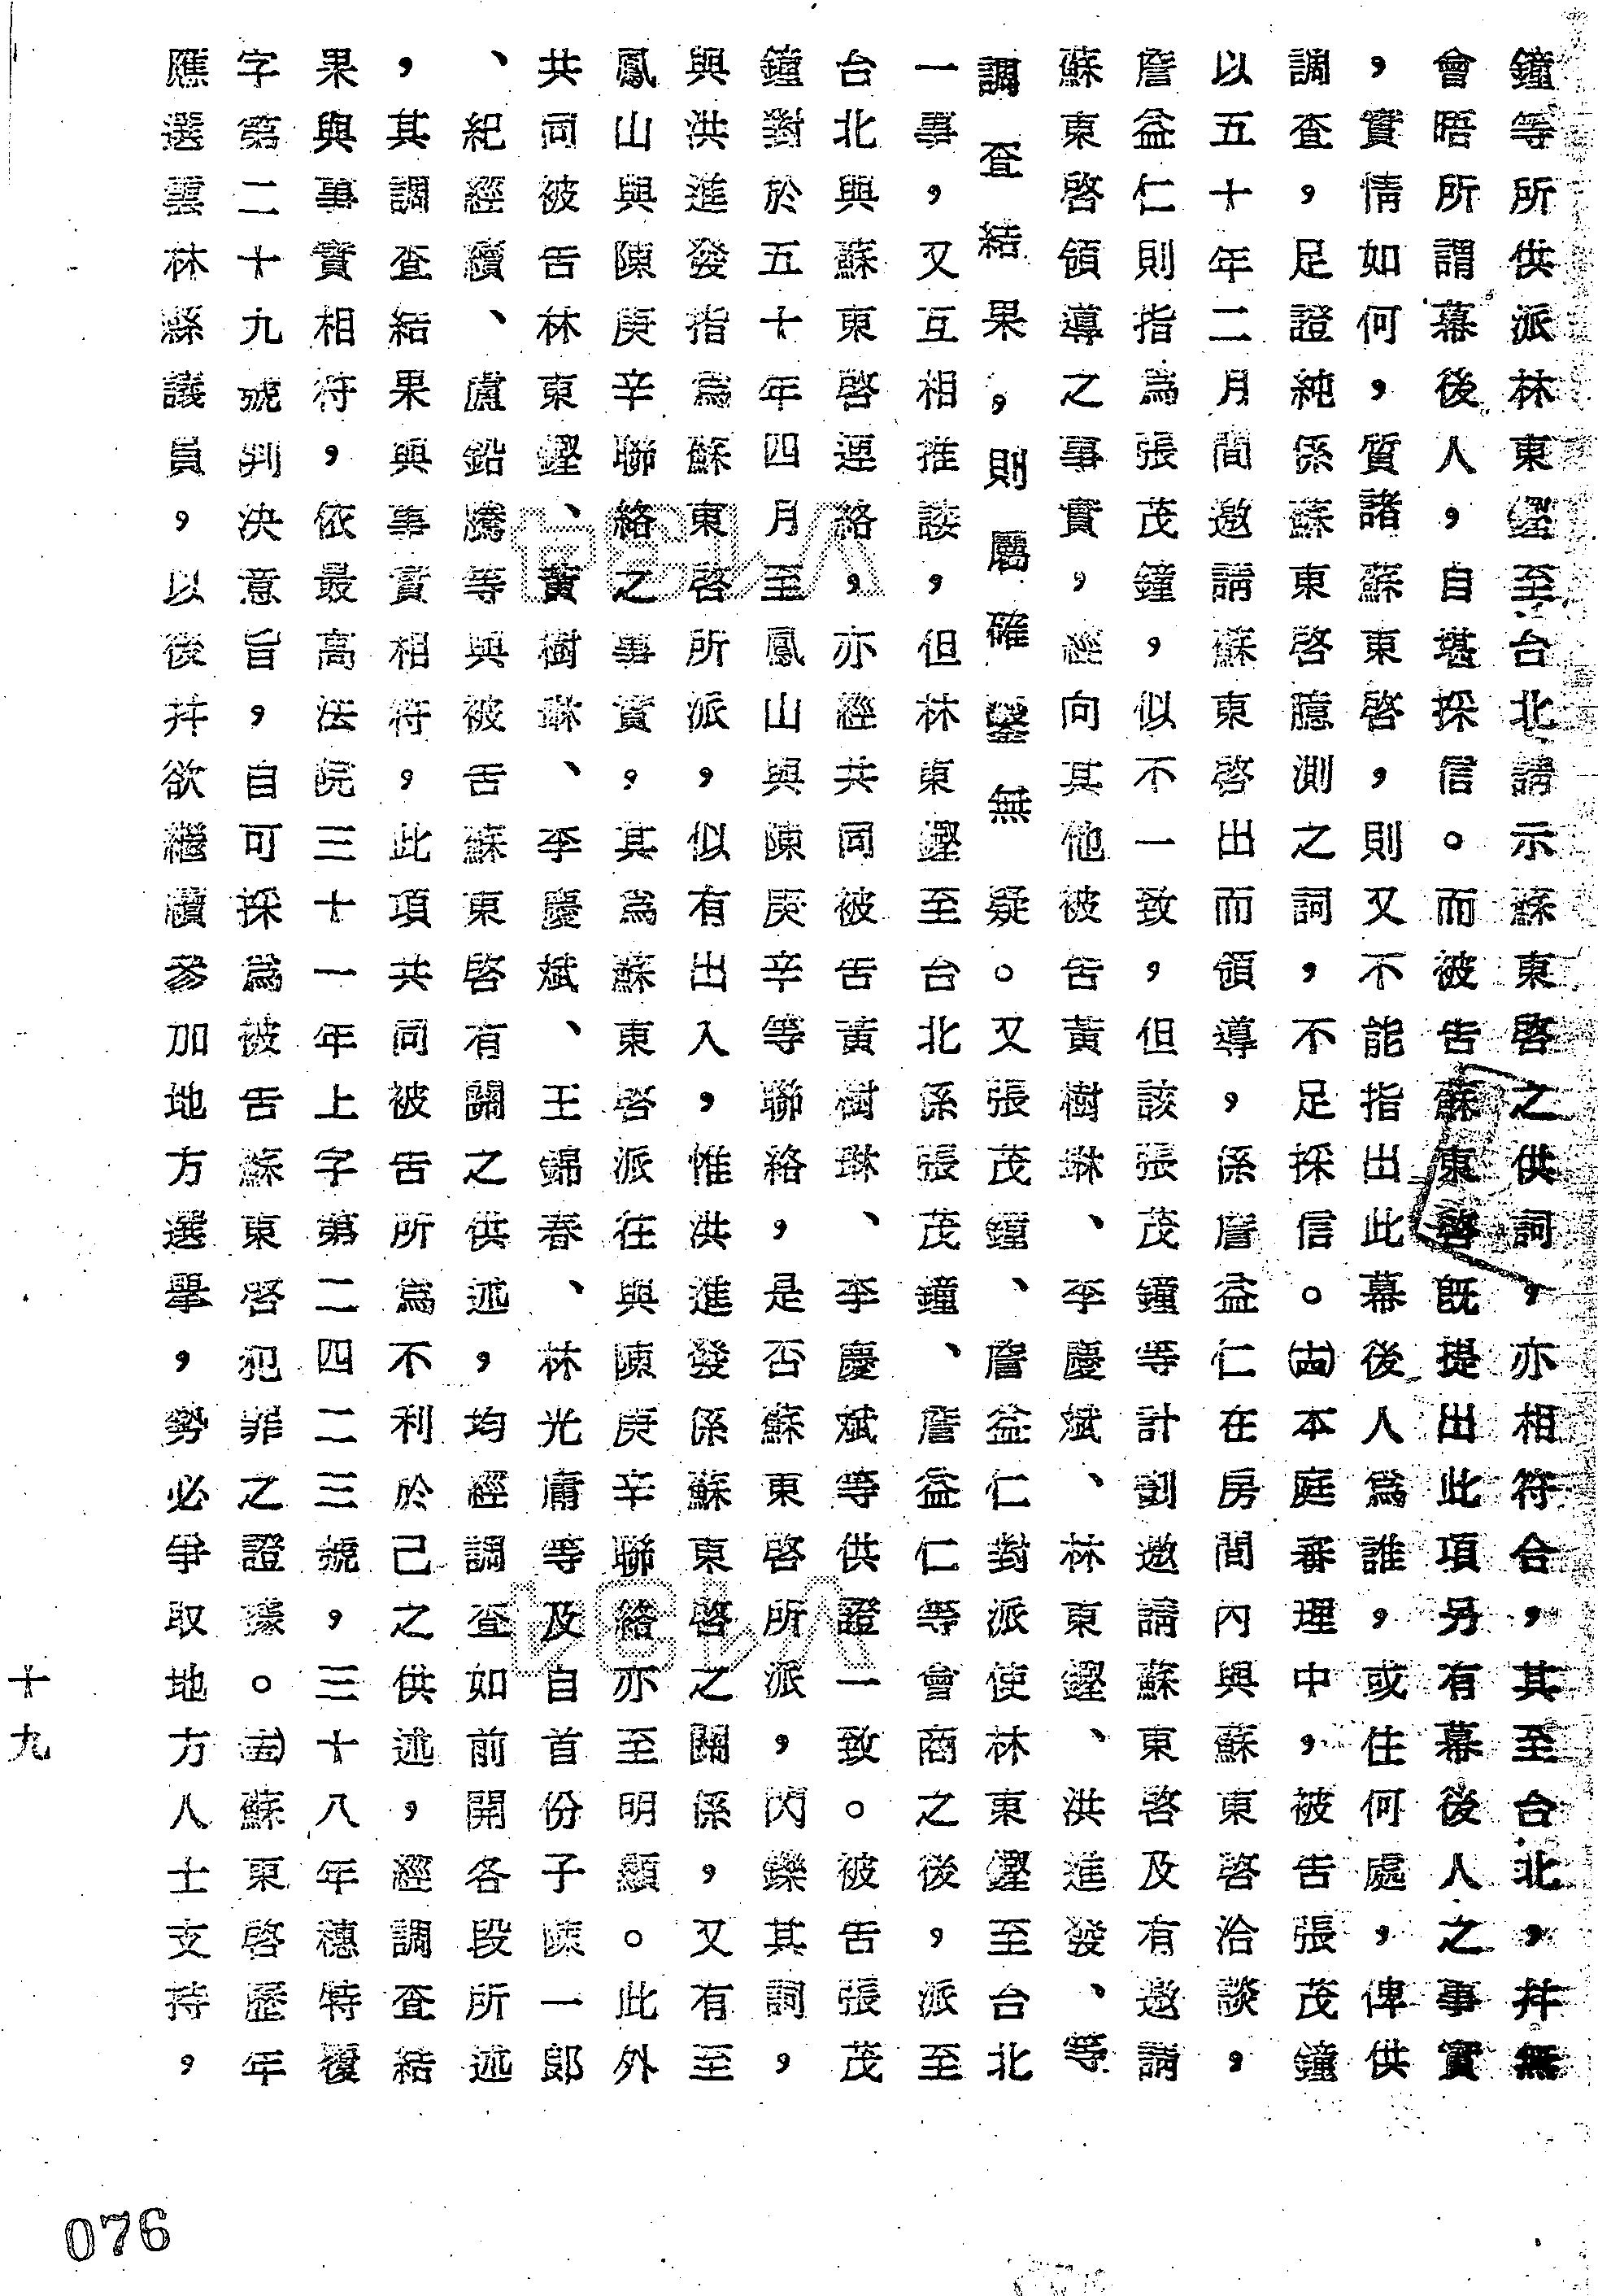 鐘等所供派林東鏗至台北請示蘇東啓之供詞，亦相符合，其至台北，幷無
會晤所謂幕後人，自堪採信。而被告蘇東啓旣提出此項另有幕後人之事實
，實情如何，質諸蘇東啓，則又不能指出此幕後人爲誰，或住何處，俾供
調查，足證純係蘇東啓臆測之詞，不足採信。㈭本庭審理中，被告張茂鐘
以五十年二月間邀請蘇東啓出而領導，係詹益仁在房間內與蘇東啓洽談，
詹益仁則指爲張茂鐘，似不一致，但該張茂鐘等計劃邀請蘇東啓及有邀請
蘇東啓領導之事實，經向其他被告黃樹琳、李慶斌、林東鏗、洪進發、等
調查結果，則屬確鑿無疑。又張茂鐘、詹益仁對派使林東鏗至台北
一事，又互相推諉，但林東鏗至台北係張茂鐘、詹益仁等會商之後，派至
台北與蘇東啓連絡，亦經共同被告黃樹琳、李慶斌等供證一致。被告張茂
鐘對於五十年四月至鳳山與陳庚辛等聯絡，是否蘇東啓所派，閃鑠其詞，
與洪進發指爲蘇東啓所派，似有出入，惟洪進發係蘇東啓之關係，又有至
鳳山與陳庚辛聯絡之事實，其爲蘇東啓派往與陳庚辛聯絡亦至明顯。此外
共同被告林東鏗、黃樹琳、李慶斌、王錦春、林光庸等及自首份子陳一郎
、紀經續、盧鉛騰等與被告蘇東啓有關之供述，均經調查如前開各段所述
，其調查結果與事實相符，此項共同被告所爲不利於己之供述，經調查結
果與事實相符，依最高法院三十一年上字第二四二三號，三十八年穗特覆
字第二十九號判決意旨，自可採爲被告蘇東啓犯罪之證據。㈤蘇東啓歷年
應選雲林縣議員，以後幷欲繼續參加地方選舉，勢必爭取地方人士支持，
十九
076